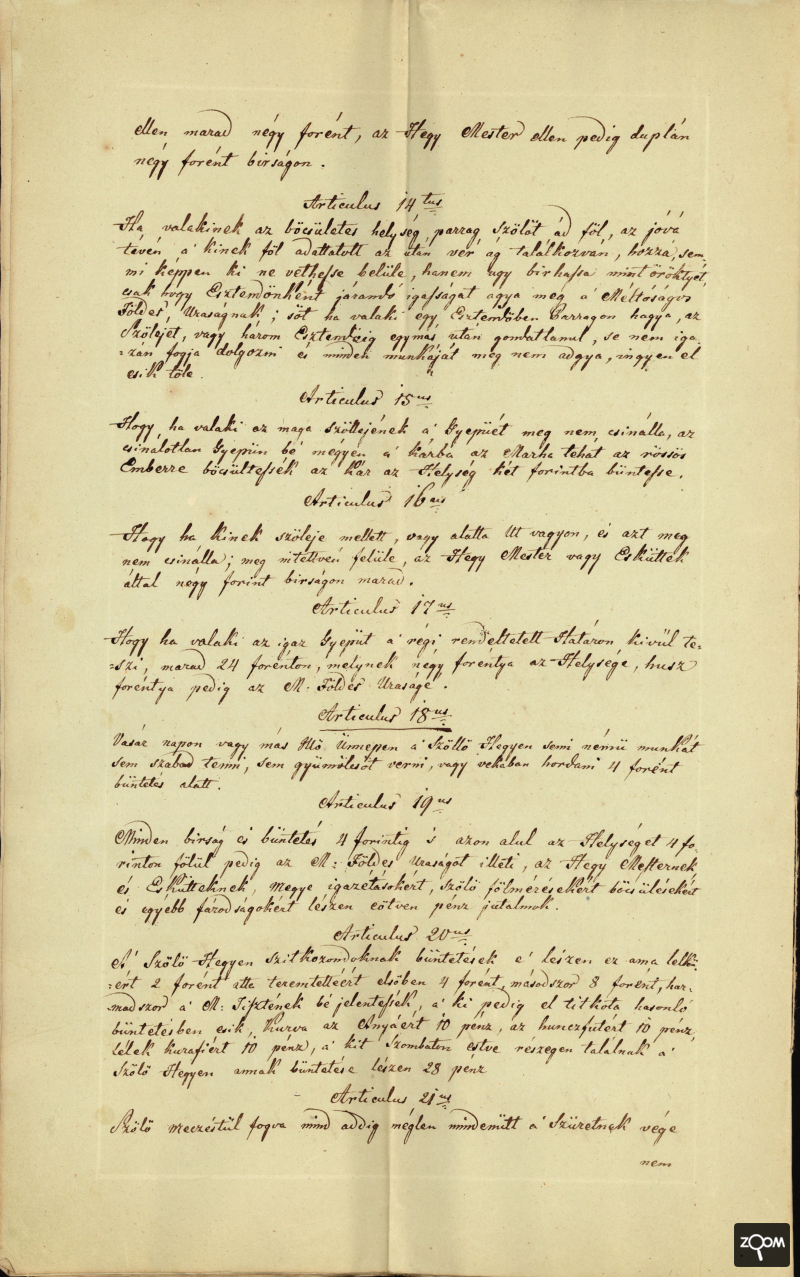 ellen marad négy forént, az Hegy Mester ellen pedig duplán
négy forént birságon.
Articulus 14tus
Ha valakinek az böcsületes helység parrag Szölöt ád föl, az jóvá
tevén a' kinek föl adattatott az után vér ág találkozván, hozzá, sem
mi képpen ki ne véthesse belüle, hanem ugy birhassa mint öröktyét,
csak hogy Esztendönként járandó igasságát agya meg a' Méltóságos
Földes Uraságnak; söt ha valaki egy Esztendöben Parragon hagya, az
Szölejét, vagy három Esztendeig egymás után gondatlanul, se nem iga
=zán fogja dolgozni és minden munkáját meg nem adgya, ingyen el
esik töle.
Articulus 15us
Hogy ha valaki az maga Szöllejének a' Gyepüét meg nem csinálla, az
csinálotlan Gyepün bé mégyen a' kárba az Marha tehát az
Emberre böcsültessék az kár az Helység két forintba büntesse.
Articulus 16us
Hogy ha kinek szöleje mellett, vagy alatta Ut vagyon, és azt meg
nem csinálla; meg felüle, az Hegy Mester vagy Esküttek
által negy forint birságon marad.
Articulus 17us
Hogy ha valaki az igaz Gyepüt a' régi rendeltetett Határon kivül te=
=szi, marad 24 forénton, melynek négy foréntya az Helységé, husz
foréntya pedig az M: Földes Uraságé.
Articulus 18us
Vasár napon vagy más Illö Ünnepen a' Szöllö Hegyen semi némü munkát
sem szabad tenni, sem gyümölcsöt verni, vagy vekában hordani 4 forént
büntetés alatt.
Articulus 19us
Minden birság és büntetés 4 forintig s azon alul az Helységet 4 fo
rinton fölül pedig az M: Földes Uraságot illeti, az Hegy Mesternek
és Eskütteknek, megye igazétásokért, Szölö fölmérésekért böcsülésekért
és egyébb fárodságokért lészen eötven pénz jutalmok.
Articulus 20us
A' Szölö Hegyen Szitkozondoknak büntetések e' lészen ez ama lelki
=ért 2 forént atta teremtettéért elsöben 4 forént, másodszor 8 forént, har
=madszor a' M: Tisztének bé jelentessék, a' ki pedig el titkóla hasonló
büntetésben esik, Kurva az Anyáért 10 pénz, az hunczfutért 10 pénz,
lélek kurafiért 10 pénz, a' kit Szombaton estve részegen találnak a'
Szölö Hegyen annak büntetése lészen 28 pénz
Articulus 21us
Szölö meczéstül fogva mind addig méglen mindenütt a' Szüretnek vége
nem
ZOOM